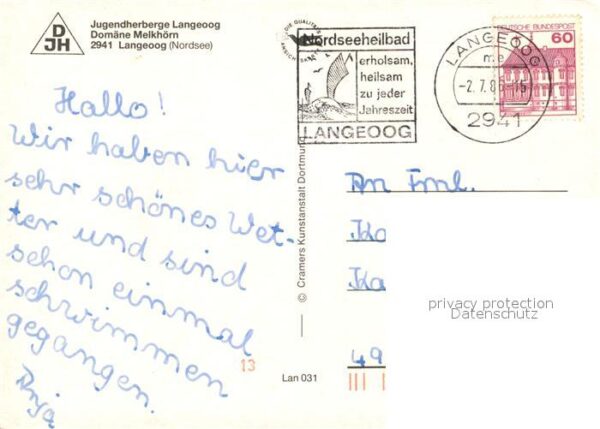 DJH
Jugendherberge Langeoog
Domäne Melkhörn
2941 Langeoog (Nordsee)
Nordseeheilbad
erholsam,
heilsam
zu jeder
Jahreszeit
LANGEOOG
LANGEOOG
me
-2.7.8
-15
2941
DEUTSCHE BUNDESPOST
60
Hallo!
Wir haben hier
sehr schönes Wet-
ter und sind
schon einmal
schwimmen
gegangen.
Anja
An Fml.
Ko
Ka
49
© Cramers Kunstanstalt Dortmund
13
Lan 031
privacy protection
Datenschutz